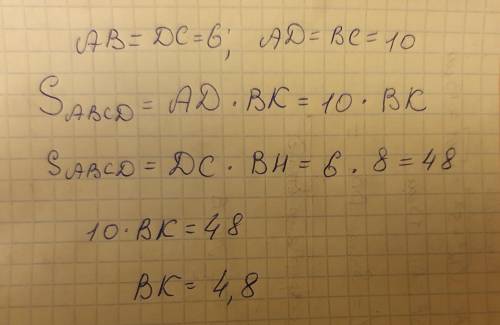 AB = DC = 6; AD = BC = 10
S ABCD = AD · BK = 10 · BK
S ABCD = DC · BH = 6 · 8 = 48
10 · BK = 48
BK = 4,8